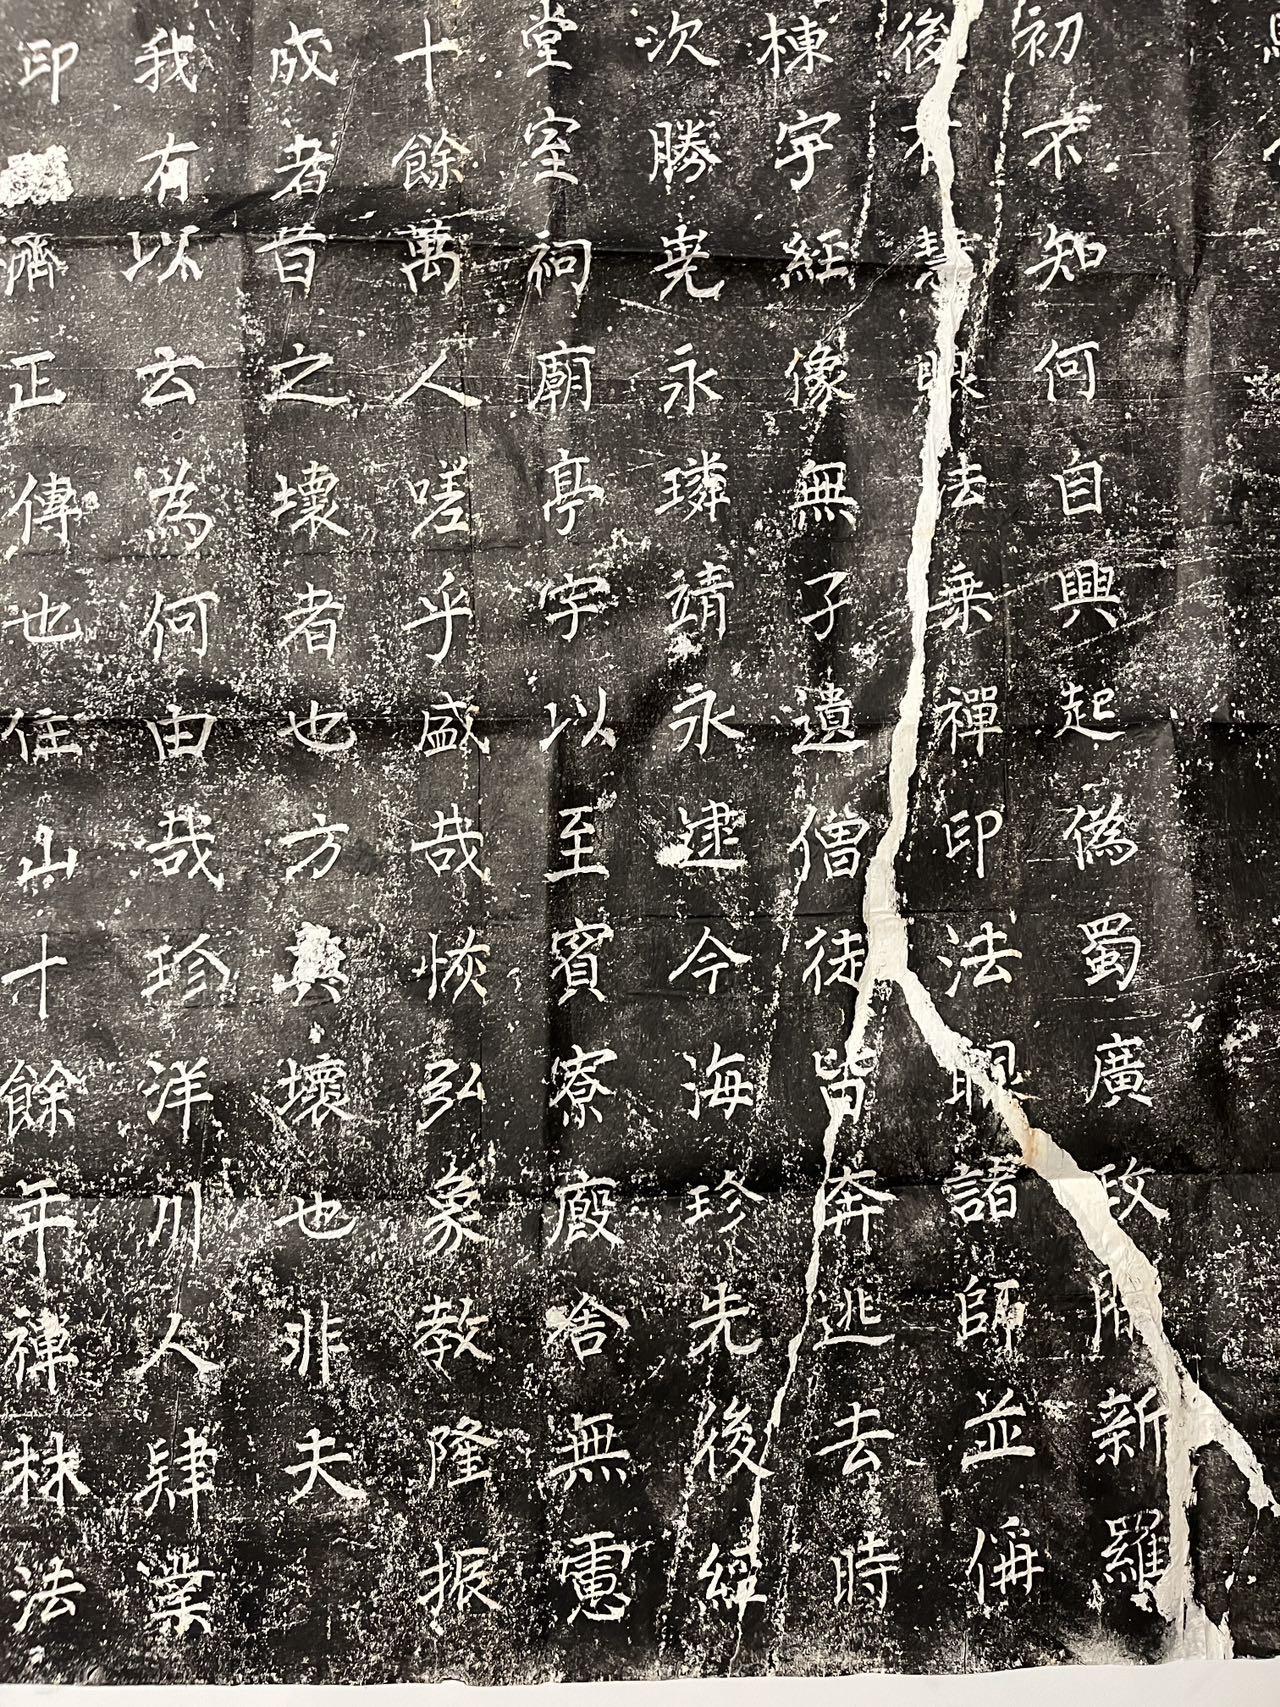 初不知何自興起偽蜀廣政閒新羅
後有慧眼法乗禪印法眼諸師並偁
棟宇經像無子遺僧徒皆奔逃去時
次勝嵬永璘靖永逮今海珍先後繼
堂室祠廟亭宇以至賓寮廄舍無慮
十餘萬人嗟乎盛哉恢弘象教隆振
成者昔之壞者也方興壞也非夫
我有以云為何由哉珍洋川人肄業
印濟正傳也住山十餘年禅林法